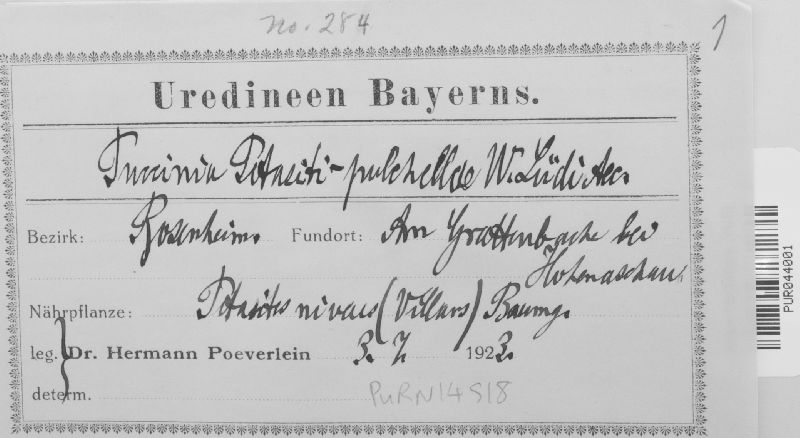 No. 284
1
Uredineen Bayerns.
Puccinia Petasiti-pulchellae W. Lüdi
Bezirk: Rosenheim. Fundort: Am Grattenbache bei
Hohenaschau.
Nährpflanze: Petasites niveus (Villars) Baumg.
leg. Dr. Hermann Poeverlein 3. 7. 1923.
determ.
PURN14918
PUR044001